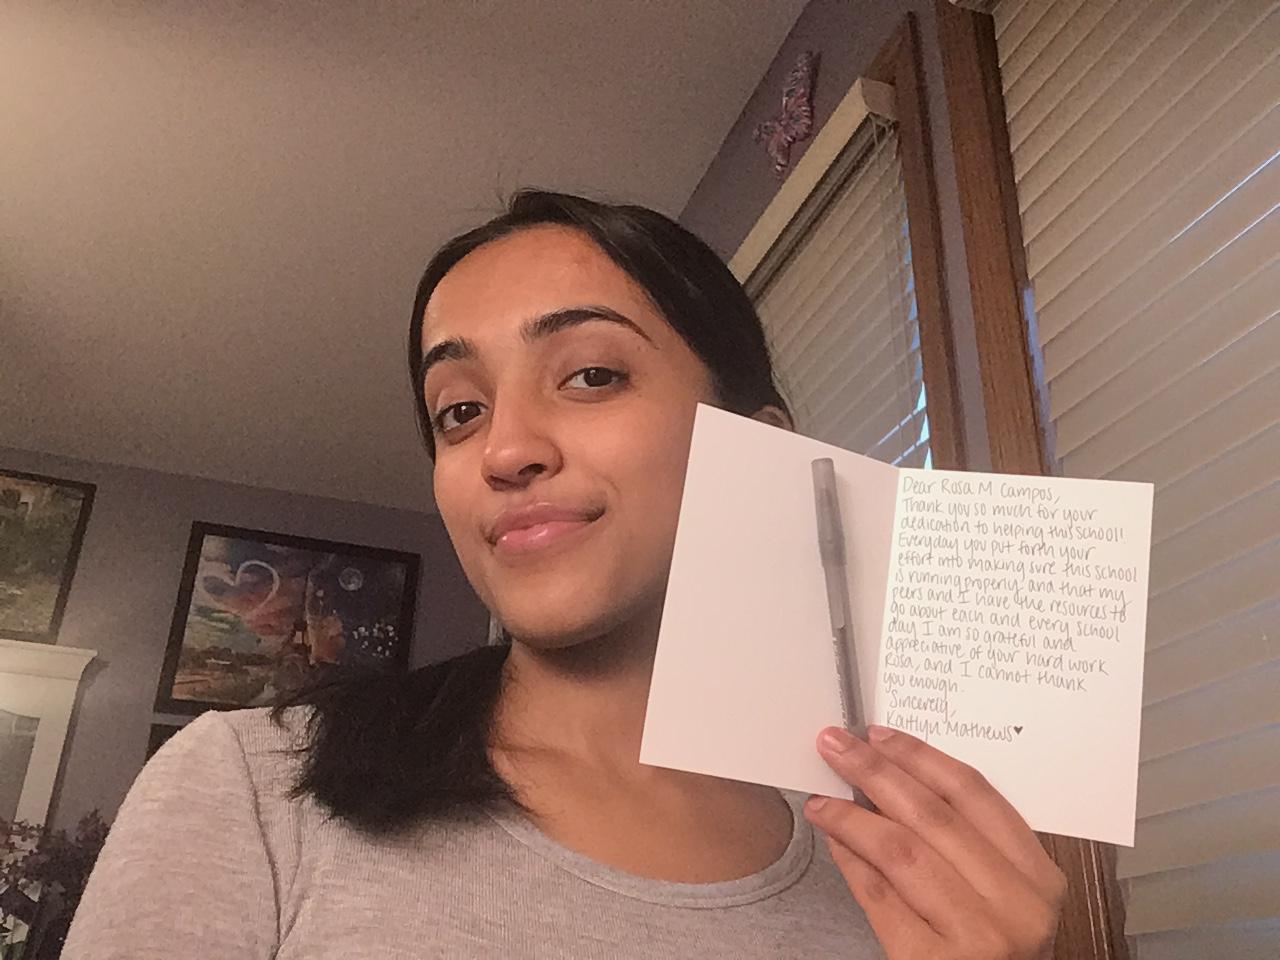 Dear Rosa M Campos,
Thank you so much for your
dedication to helping this school!
Everyday you put forth your
effort into making sure this school
is running properly and that my
peers and I have the resources to
go about each and every school
day I am so grateful and
appreciative of your hard work
Rosa, and I cannot thank
you enough.
Sincerely,
Kaitlyn Mathews♥